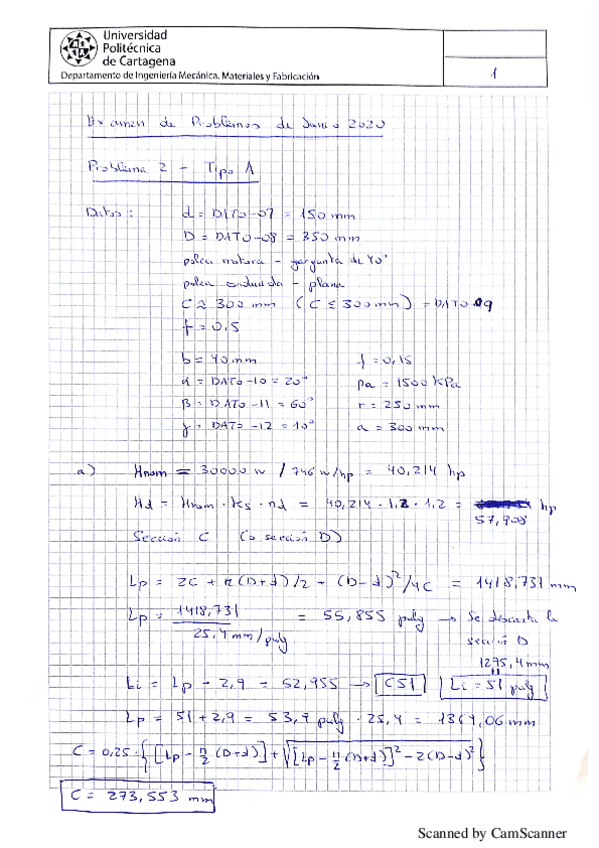 Universidad
Politécnica
de Cartagena
Departamento de Ingeniería Mecánica, Materiales y Fabricación
1
Examen de Problemas de Junio 2020
Problema 2 - Tipo A
Datos: d = DATO-07 = 150 mm
D = DATO-08 = 350 mm
polea motora - garganta de 40°
polea conducida - plana
C ≈ 300 mm (C ≤ 300 mm) = DATO 09
f = 0,5
b = 40 mm f = 0,15
α = DATO-10 = 20° pa = 1500 kPa
β = DATO-11 = 60° r = 250 mm
γ = DATO-12 = 10° a = 300 mm
a) Hnom = 30000 w / 746 w/hp = 40,214 hp
Hd = Hnom · Ks · nd = 40,214 · 1,2 · 1,2 = hp
57,908
Sección C (o sección D)
Lp = 2C + π(D+d)/2 + (D-d)²/4C = 1418,731 mm
Lp = 1418,731 / 25,4 mm/pulg = 55,855 pulg → Se descarta la
sección D
1295,4 mm
Li = Lp - 2,9 = 52,955 → C51 Li = 51 pulg
Lp = 51 + 2,9 = 53,9 pulg · 25,4 = 1369,06 mm
C = 0,25 · { [Lp - π/2 (D+d)] + √[Lp - π/2 (D+d)]² - 2(D-d)² }
C = 273,553 mm
Scanned by CamScanner